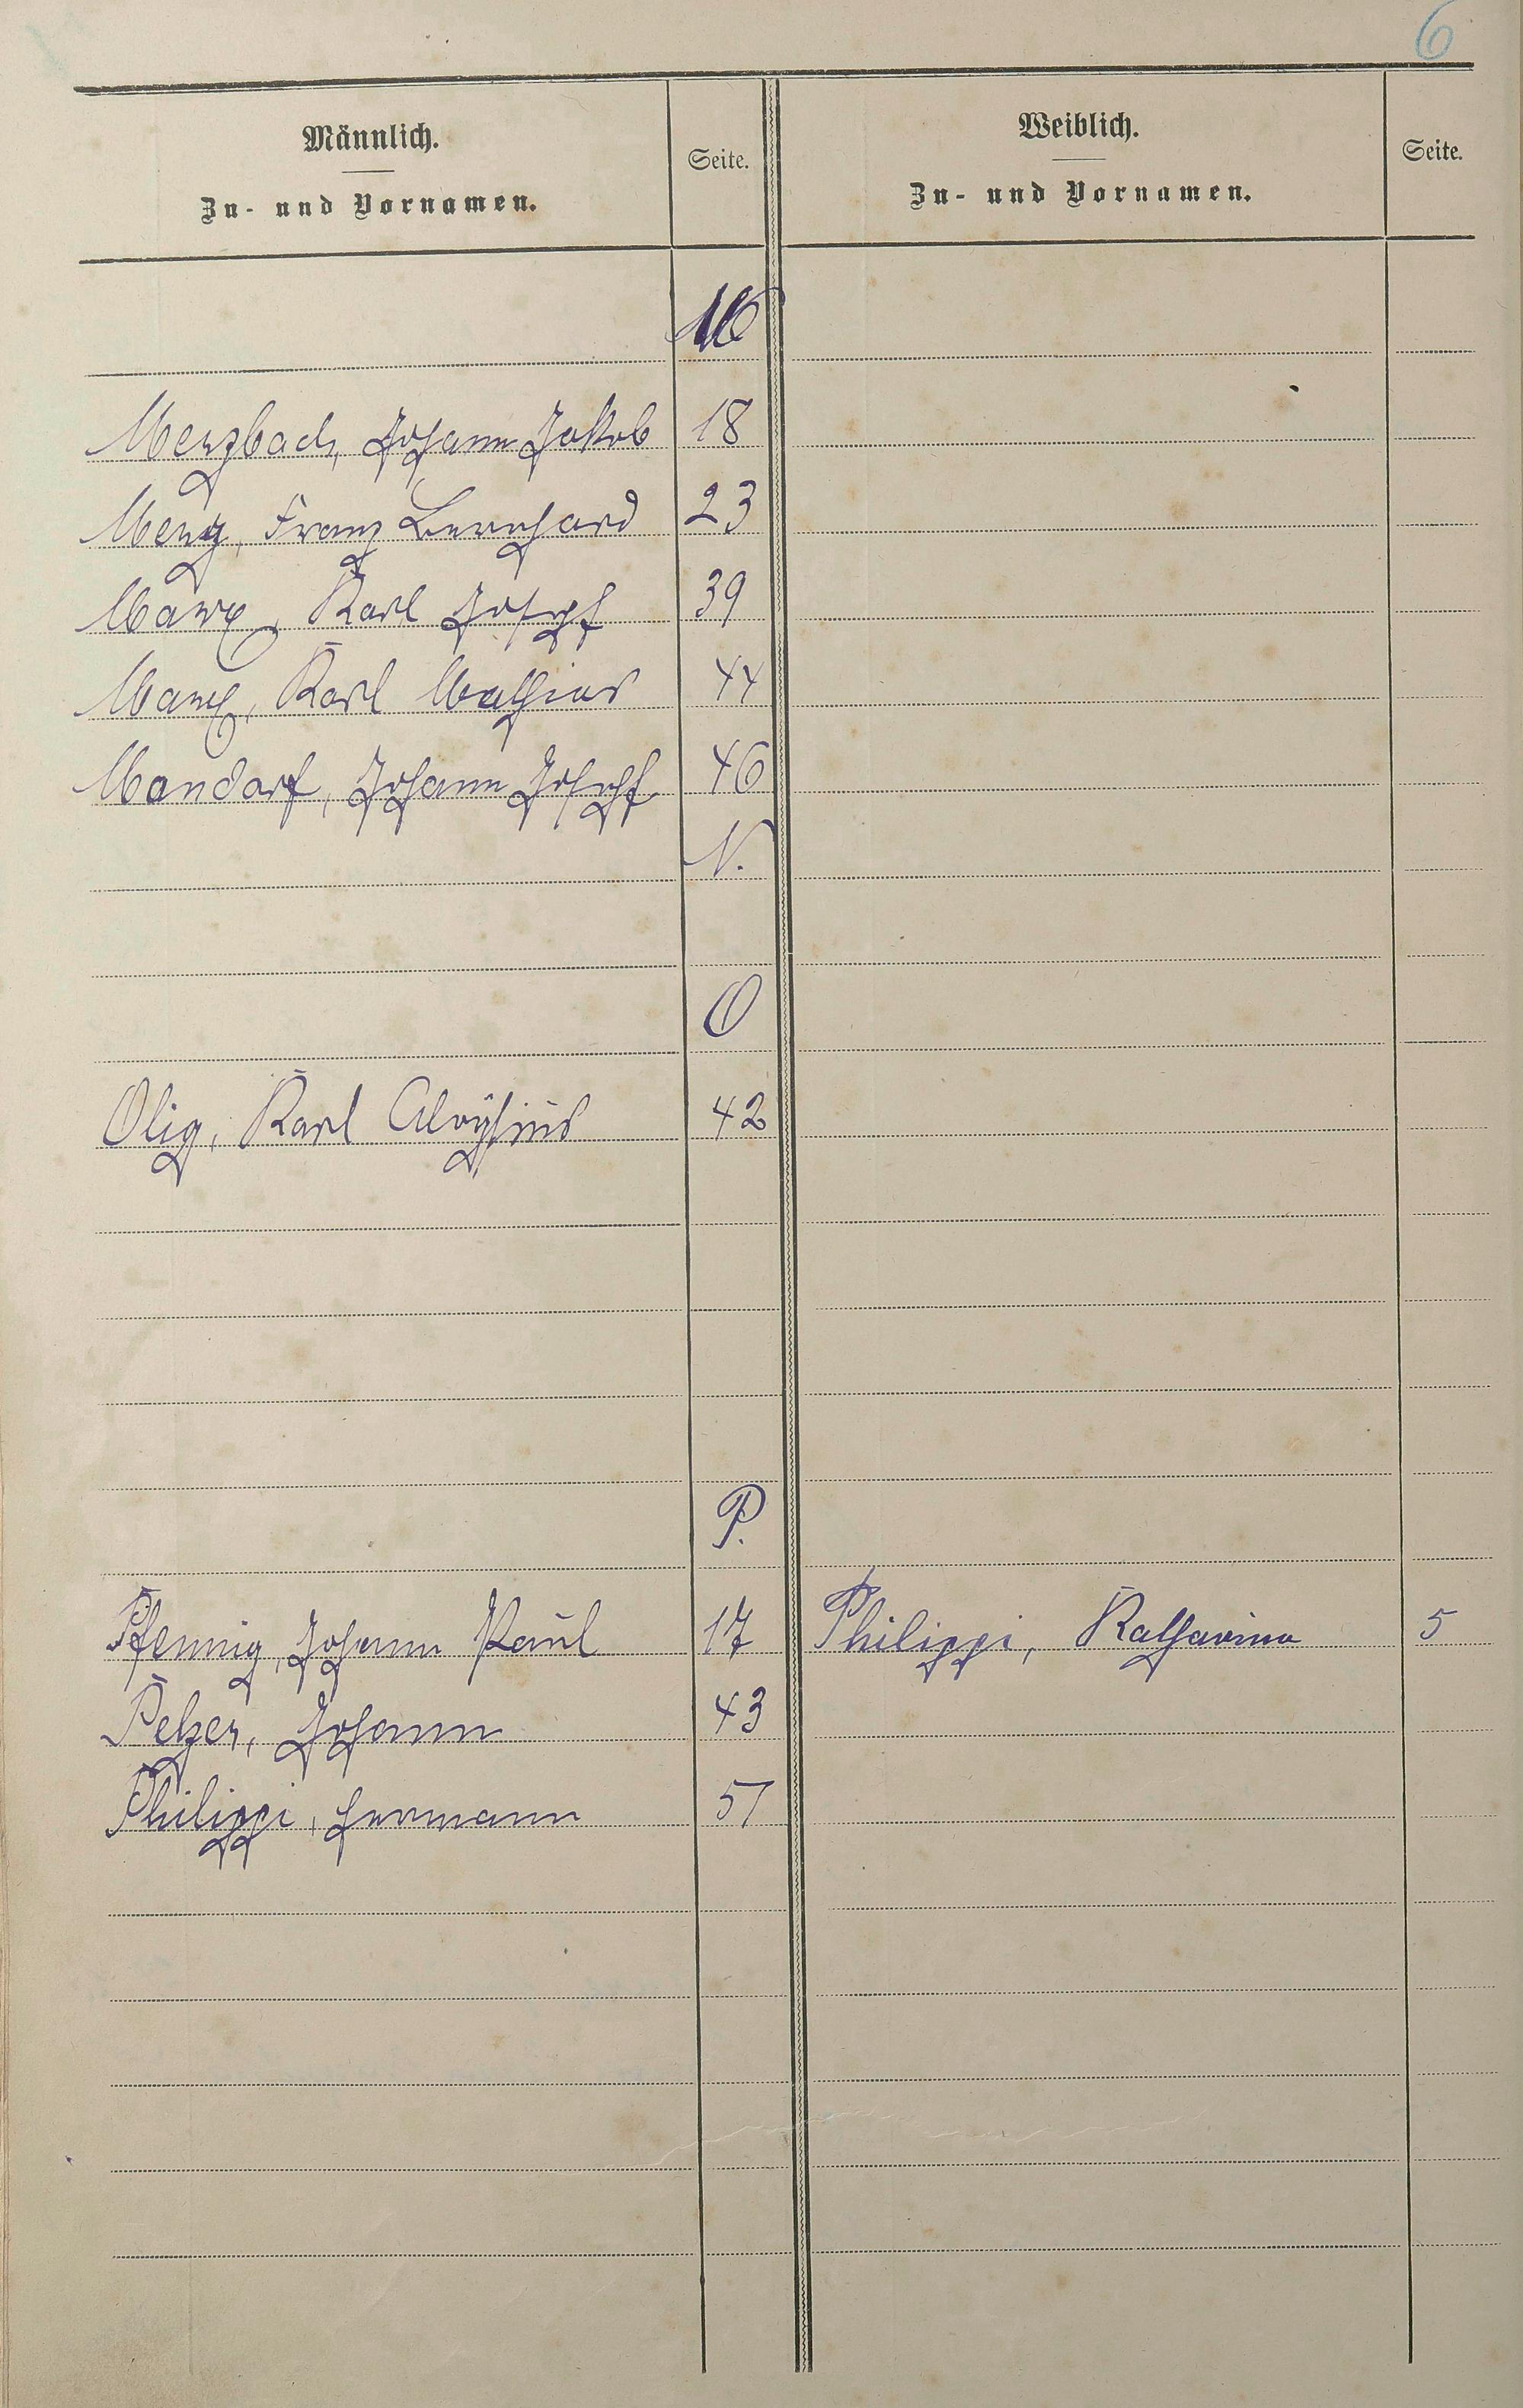 6
Männlich.
Zu- und Vornamen.
Seite.
Weiblich.
Zu- und Vornamen.
Seite.
M
Merzbach, Johann Jakob 18
Merg, Franz Bernhard 23
Marx, Karl Joseph 39
Marx, Karl Mathias 44
Mandorf, Johann Joseph 46
N.
O
Olig, Karl Aloÿsius 42
P.
Pfennig, Johann Paul 17 Philippi, Katharina 5
Pelzer, Johann 43
Philippi, Hermann 51